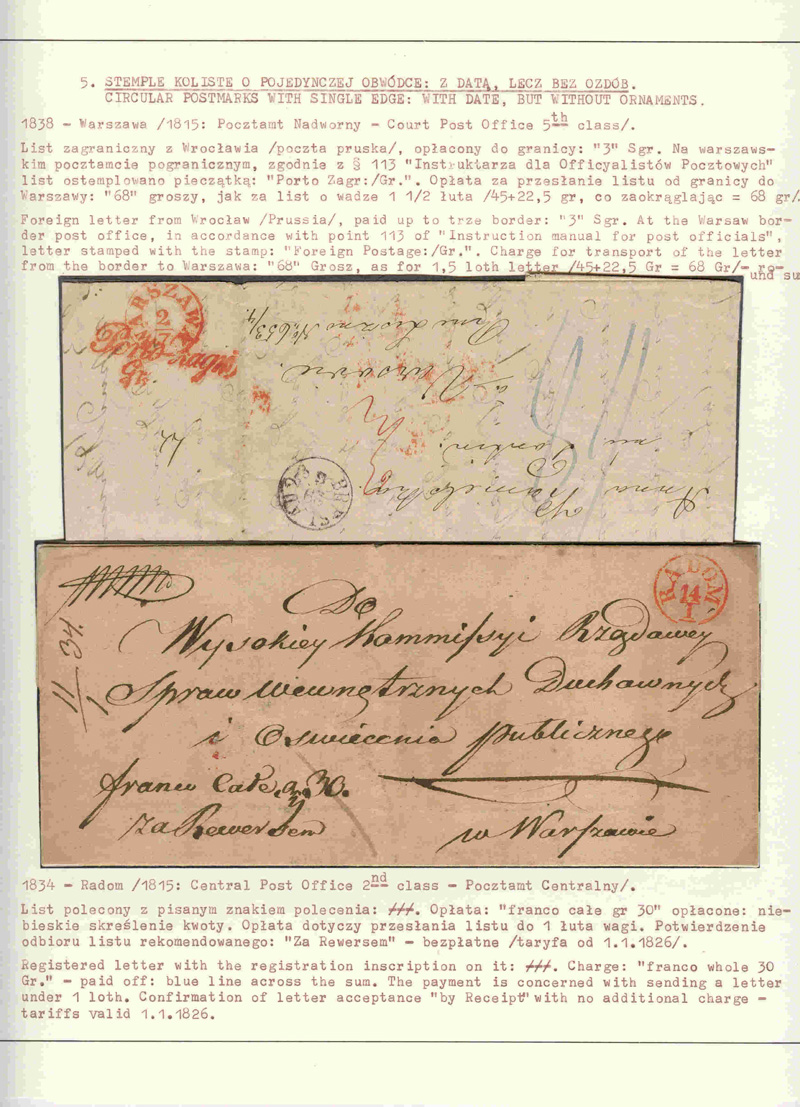 5. STEMPLE KOLISTE O POJEDYNCZEJ OBWÓDCE: Z DATĄ, LECZ BEZ OZDÓB.
CIRCULAR POSTMARKS WITH SINGLE EDGE: WITH DATE, BUT WITHOUT ORNAMENTS.
1838 - Warszawa /1815: Pocztamt Nadworny - Court Post Office 5th class/.
List zagraniczny z Wrocławia /poczta pruska/, opłacony do granicy: "3" Sgr. Na warszaws-
kim pocztamcie pogranicznym, zgodnie z § 113 "Instruktarza dla Officyalistów Pocztowych"
list ostemplowano pieczątką: "Porto Zagr:/Gr.". Opłata za przesłanie listu od granicy do
Warszawy: "68" groszy, jak za list o wadze 1 1/2 łuta /45+22,5 gr, co zaokrąglając = 68 gr/.
Foreign letter from Wrocław /Prussia/, paid up to trze border: "3" Sgr. At the Warsaw bor-
der post office, in accordance with point 113 of "Instruction manual for post officials",
letter stamped with the stamp: "Foreign Postage:/Gr.". Charge for transport of the letter
from the border to Warszawa: "68" Grosz, as for 1,5 loth letter /45+22,5 Gr = 68 Gr/- ro-
und su
WARSZAWA
2/7
Porto zagr:
Gr.
à Varsovie
BRESLAU
RADOM
14
I
11/1 34.
Do
Wysokiey Kommissyi Rządowey
Spraw Wewnętrznych Duchownych
i Oswiecenia Publicznego
franco Całe gr 30.
za Rewersem
w Warszawie
1834 - Radom /1815: Central Post Office 2nd class - Pocztamt Centralny/.
List polecony z pisanym znakiem polecenia: ///. Opłata: "franco całe gr 30" opłacone: nie-
bieskie skreślenie kwoty. Opłata dotyczy przesłania listu do 1 łuta wagi. Potwierdzenie
odbioru listu rekomendowanego: "Za Rewersem" - bezpłatne /taryfa od 1.1.1826/.
Registered letter with the registration inscription on it: ///. Charge: "franco whole 30
Gr." - paid off: blue line across the sum. The payment is concerned with sending a letter
under 1 loth. Confirmation of letter acceptance "by Receipt" with no additional charge -
tariffs valid 1.1.1826.